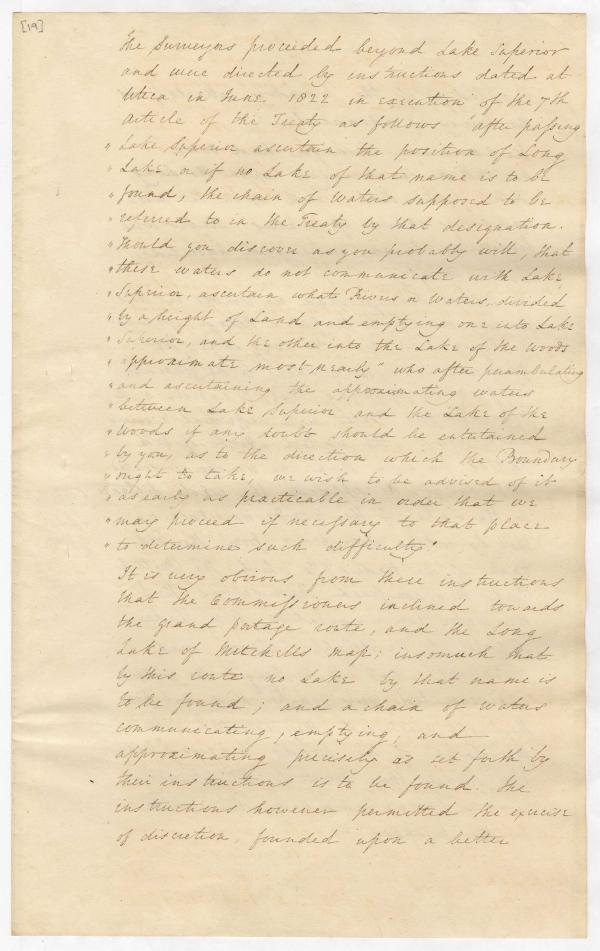 [19]
The Surveyors proceeded beyond Lake Superior
and were directed by instructions dated at
Utica in June 1822 in execution of the 7th
Article of the Treaty as follows "after passing
" Lake Superior ascertain the position of Long
" Lake or if no Lake of that name is to be
" found, the chain of waters supposed to be
" referred to in the Treaty by that designation.
" Should you discover as you probably will, that
" these waters do not communicate with Lake
" Superior, ascertain what Rivers or Waters, divided
" by a height of Land and emptying one into Lake
" Superior, and the other into the Lake of the Woods
" approximate most nearly" who after perambulating
" and ascertaining the approximating waters
" between Lake Superior and the Lake of the
" Woods if any doubt should be entertained
" by you, as to the direction which the Boundary
" ought to take, we wish to be advised of it
" as early as practicable in order that we
" may proceed if necessary to that place
" to determine such difficulty."
It is very obvious from these instructions
that the Commissioners inclined towards
the grand portage route, and the Long
Lake of Mitchells map; insomuch that
by this route no Lake by that name is
to be found; and a chain of waters
communicating, emptying, and
approximating precisely as set forth by
their instructions is to be found. The
instructions however permitted the exercise
of discretion, founded upon a better